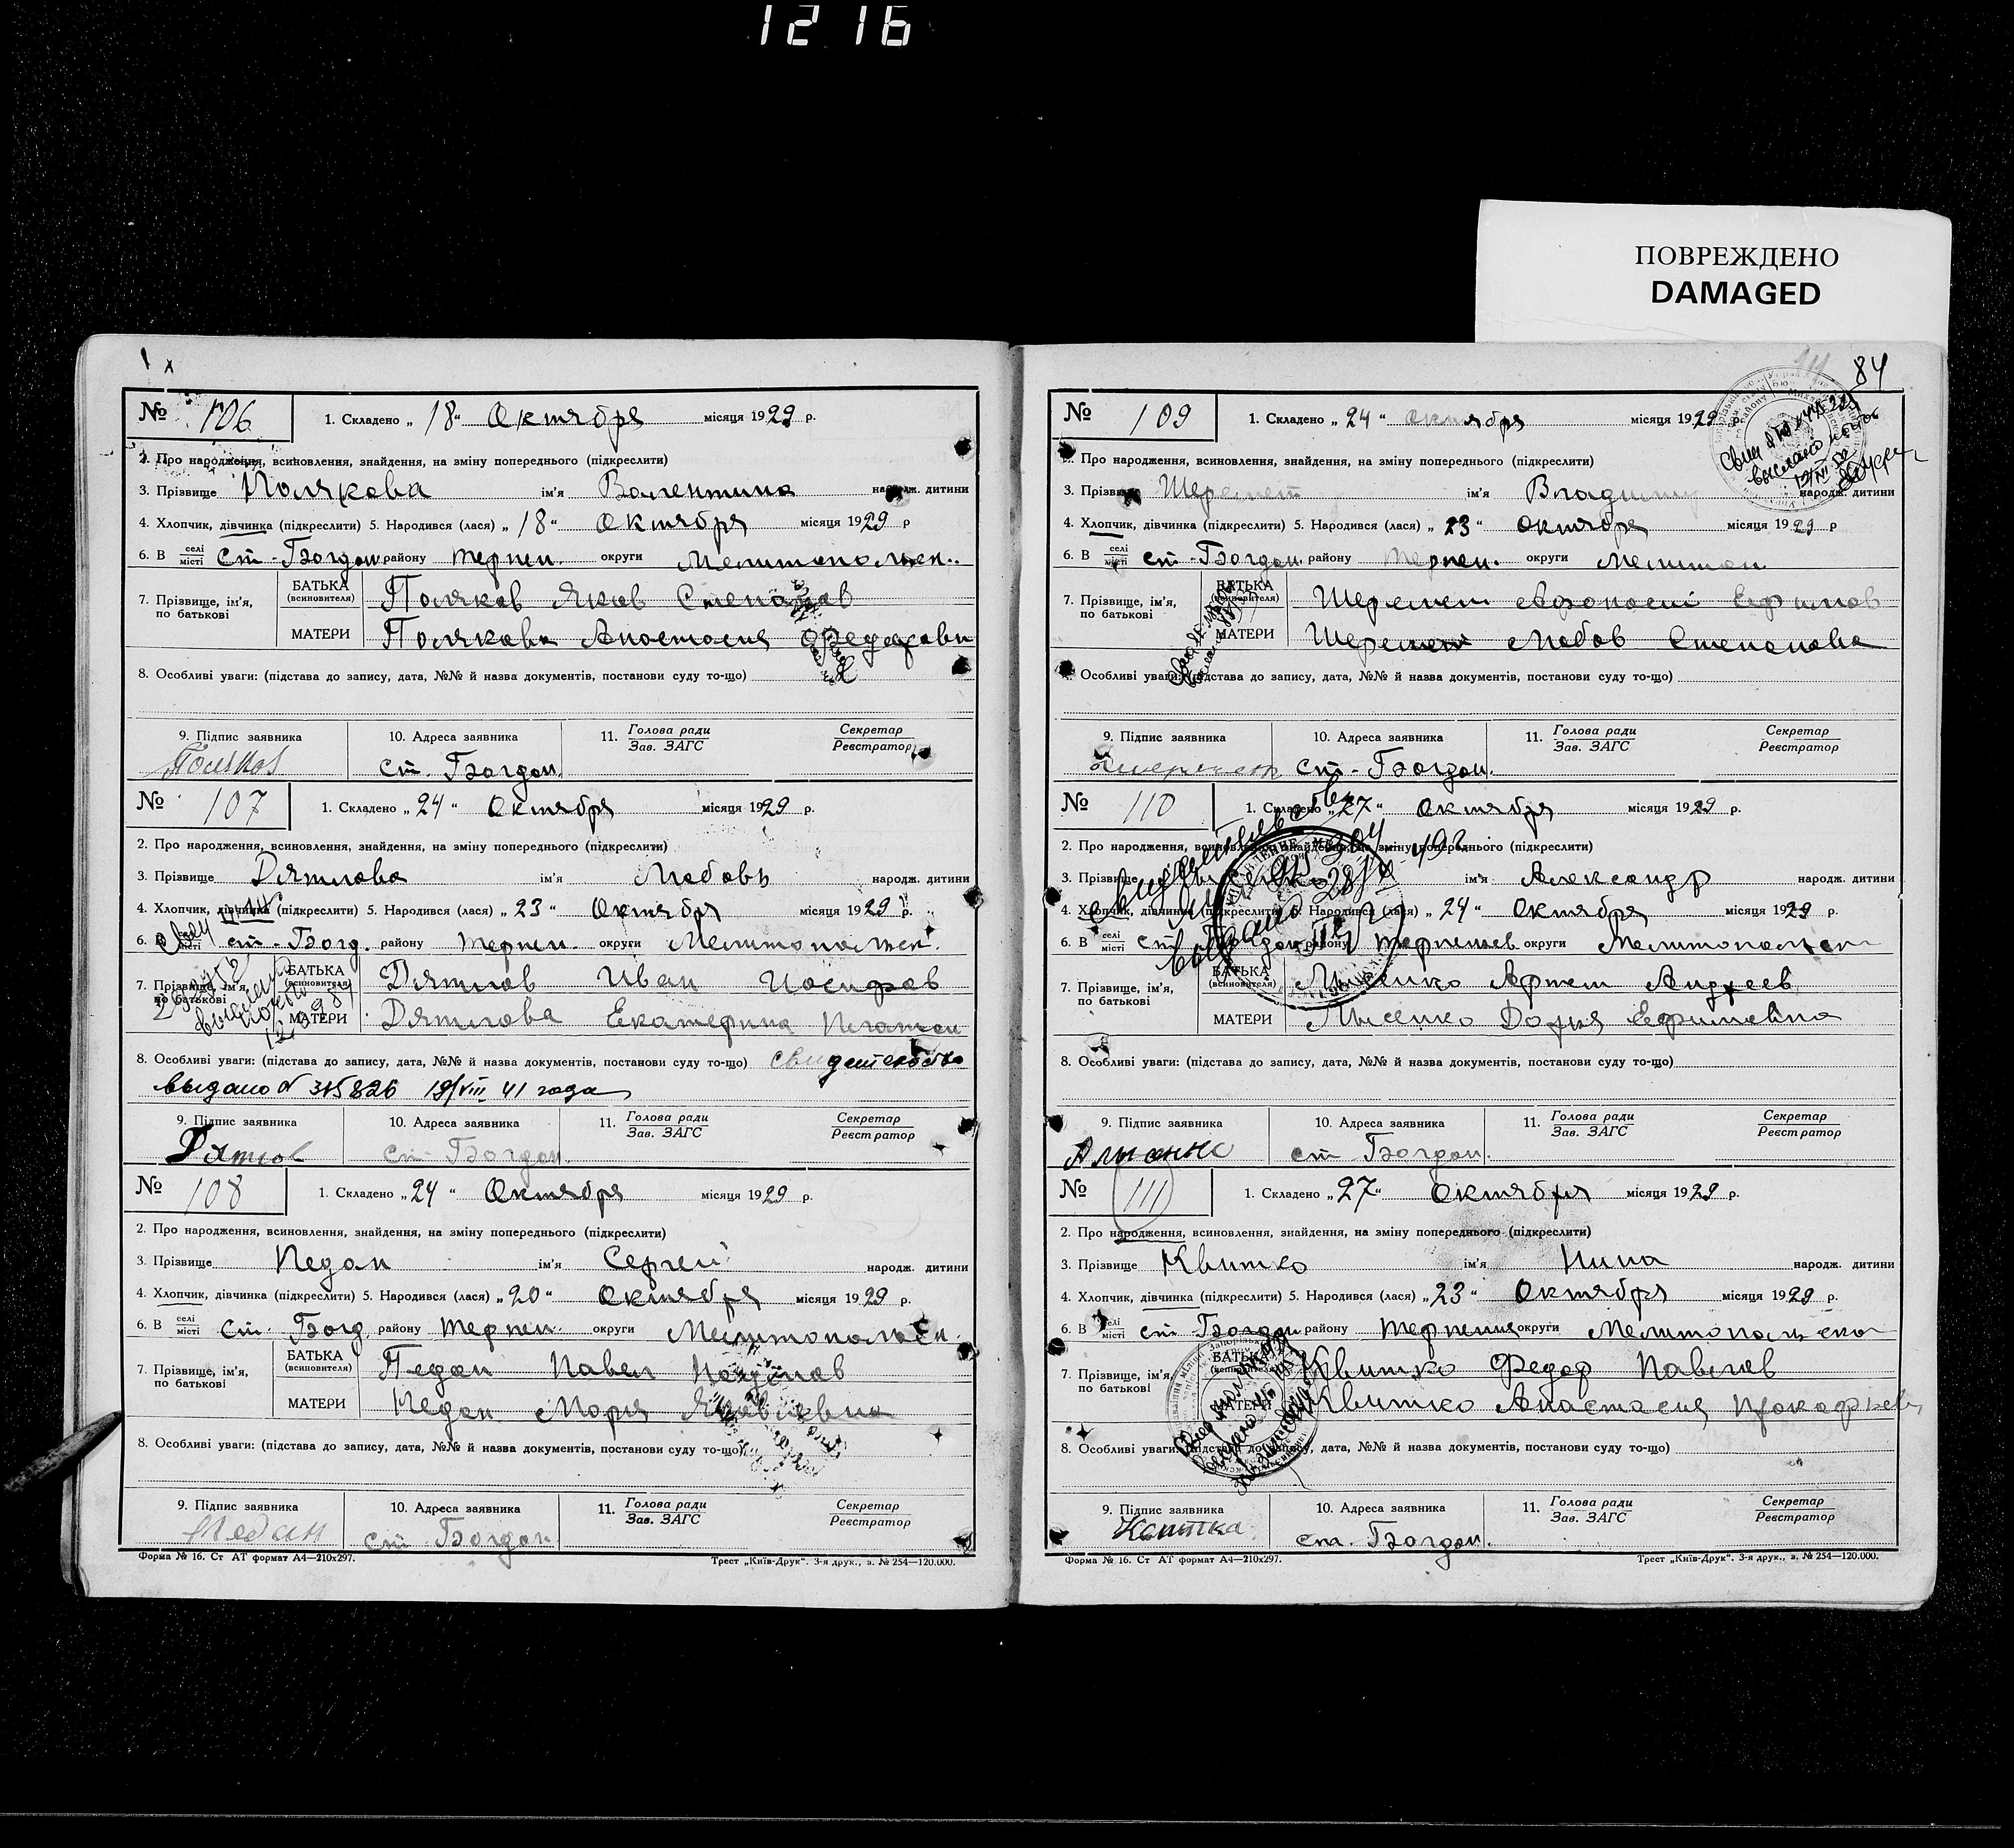 12 16
ПОВРЕЖДЕНО
DAMAGED
№ 106 1. Складено „18“ Октября місяця 1929 р.
2. Про народження, всиновлення, знайдення, на зміну попереднього (підкреслити)
3. Прізвище Полякова ім'я Валентина народж. дитини
4. Хлопчик, дівчинка (підкреслити) 5. Народився (лася) „18“ Октября місяця 1929 р
6. В селі місті ст-Богдан району терпен. округи Мелитопольск.
7. Прізвище, ім'я, по батькові БАТЬКА (всиновителя) Поляков Яков Степанов
МАТЕРИ Полякова Анастасия
8. Особливі уваги: (підстава до запису, дата, №№ й назва документів, постанови суду то-що)
9. Підпис заявника 10. Адреса заявника 11. Голова ради Зав. ЗАГС Секретар Реєстратор
Поляков ст. Богдан.
№ 107 1. Складено „24“ Октября місяця 1929 р.
2. Про народження, всиновлення, знайдення, на зміну попереднього (підкреслити)
3. Прізвище Дятлова ім'я Любовь народж. дитини
4. Хлопчик, дівчинка (підкреслити) 5. Народився (лася) „23“ Октября місяця 1929 р.
6. В місті ст-Богд. району терпен. округи Мелитопольск.
7. Прізвище, ім'я, по батькові БАТЬКА (всиновителя) Дятлов Иван Иосифов
МАТЕРИ Дятлова Екатерина
8. Особливі уваги: (підстава до запису, дата, №№ й назва документів, постанови суду то-що) свидетельство
выдано № 315826 19/VIII 41 года
9. Підпис заявника 10. Адреса заявника 11. Голова ради Зав. ЗАГС Секретар Реєстратор
Дятлов ст Богдан.
№ 108 1. Складено „24“ Октября місяця 1929 р.
2. Про народження, всиновлення, знайдення, на зміну попереднього (підкреслити)
3. Прізвище Педан ім'я Сергей народж. дитини
4. Хлопчик, дівчинка (підкреслити) 5. Народився (лася) „20“ Октября місяця 1929 р.
6. В селі місті ст. Богд. району терпен. округи Мелитопольск.
7. Прізвище, ім'я, по батькові БАТЬКА (всиновителя) Педан Павел
МАТЕРИ Педан Мария Яковлевна
8. Особливі уваги: (підстава до запису, дата, №№ й назва документів, постанови суду то-що)
9. Підпис заявника 10. Адреса заявника 11. Голова ради Зав. ЗАГС Секретар Реєстратор
Педан ст Богдан.
Форма № 16. Ст АТ формат А4—210х297. Трест „Київ-Друк“. 3-я друк., з. № 254—120.000.
84
№ 109 1. Складено „24“ Октября місяця 1929 р.
Про народження, всиновлення, знайдення, на зміну попереднього (підкреслити)
3. Прізвище Шеремет ім'я Владимир народж. дитини
4. Хлопчик, дівчинка (підкреслити) 5. Народився (лася) „23“ Октября місяця 1929 р
6. В селі місті ст-Богдан. району терпен. округи Мелитоп
7. Прізвище, ім'я, по батькові БАТЬКА (всиновителя) Шеремет Ефимов
МАТЕРИ Шеремет Любов Степанова
Особливі уваги: (підстава до запису, дата, №№ й назва документів, постанови суду то-що)
9. Підпис заявника 10. Адреса заявника 11. Голова ради Зав. ЗАГС Секретар Реєстратор
Шеремет ст-Богдан.
№ 110 1. Складено „27“ Октября місяця 1929 р.
2. Про народження, всиновлення, знайдення, на зміну попереднього (підкреслити)
3. Прізвище ім'я Александр народж. дитини
4. Хлопчик, дівчинка (підкреслити) 5. Народився (лася) „24“ Октября місяця 1929 р.
6. В селі місті ст Богдан району округи Мелитопольск
7. Прізвище, ім'я, по батькові БАТЬКА (всиновителя) Лысенко Артем Андреев
МАТЕРИ Лысенко Дарья Ефимовна
8. Особливі уваги: (підстава до запису, дата, №№ й назва документів, постанови суду то-що)
9. Підпис заявника 10. Адреса заявника 11. Голова ради Зав. ЗАГС Секретар Реєстратор
ст Богдан.
№ 111 1. Складено „27“ Октября місяця 1929 р.
2. Про народження, всиновлення, знайдення, на зміну попереднього (підкреслити)
3. Прізвище Квитко ім'я Нина народж. дитини
4. Хлопчик, дівчинка (підкреслити) 5. Народився (лася) „23“ Октября місяця 1929 р.
6. В селі місті ст Богдан району округи Мелитопольска
7. Прізвище, ім'я, по батькові БАТЬКА Квитко Федор Павлов
МАТЕРИ Квитко Анастасия
8. Особливі уваги: (підстава до запису, дата, №№ й назва документів, постанови суду то-що)
9. Підпис заявника 10. Адреса заявника 11. Голова ради Зав. ЗАГС Секретар Реєстратор
ст-Богдан.
Форма № 16. Ст АТ формат А4—210х297. Трест „Київ-Друк“. 3-я друк., з. № 254—120.000.